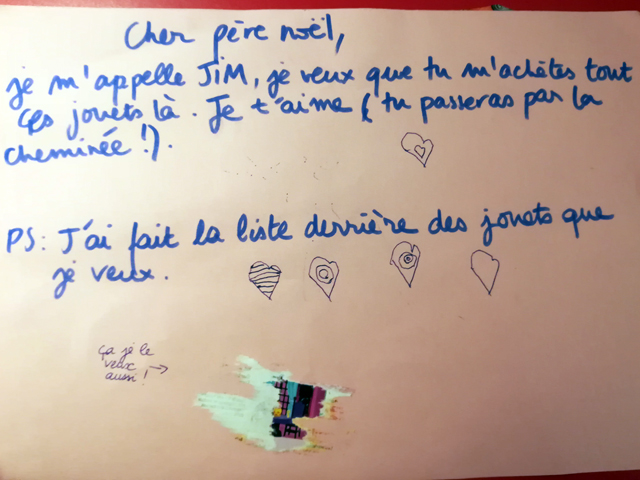 Cher père noël,
je m'appelle JiM, je veux que tu m'achètes tout
ces jouets là. Je t'aime ( tu passeras par la
cheminée !).
PS: J'ai fait la liste derrière des jouets que
je veux.
ça je le
veux
aussi !